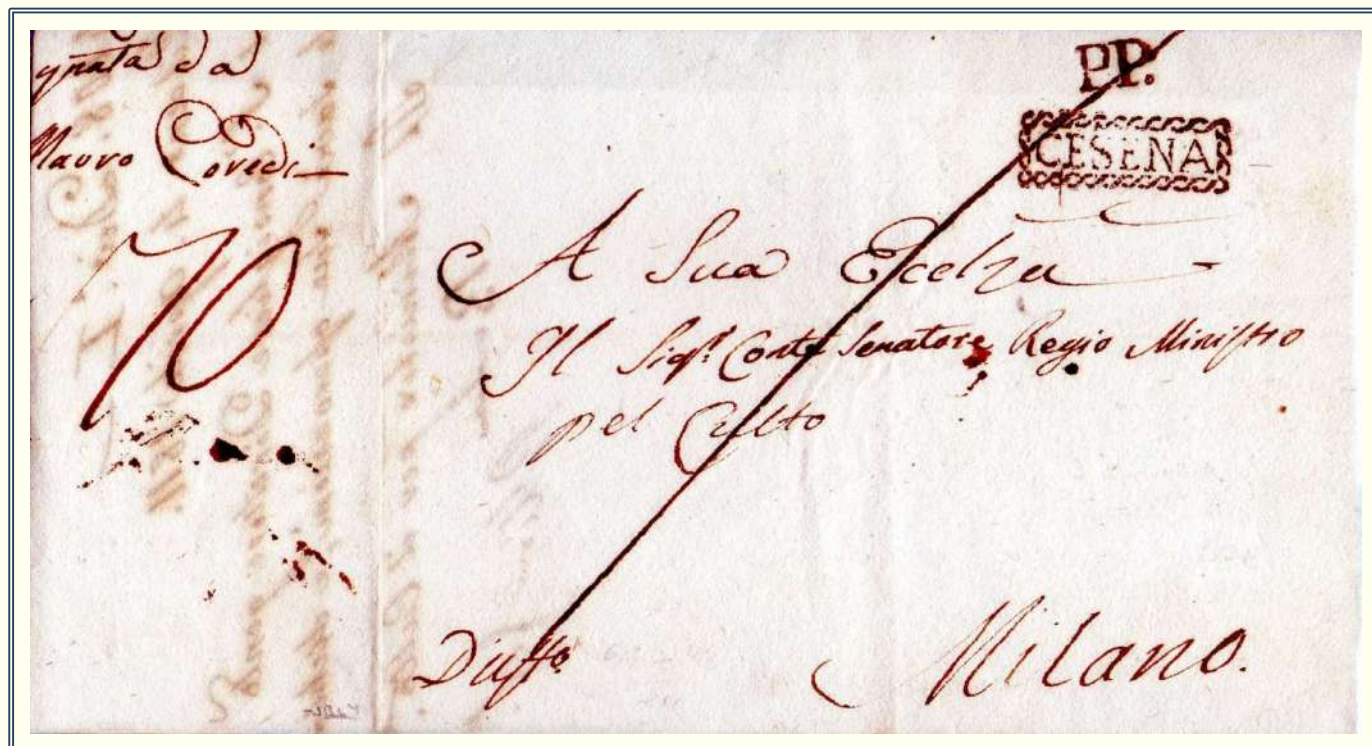 gnata da
Mauro Covedi
70
PP.
CESENA
A Sua Ecelza
Il Sigr. Conte Senatore Regio Ministro
pel Culto
Milano.